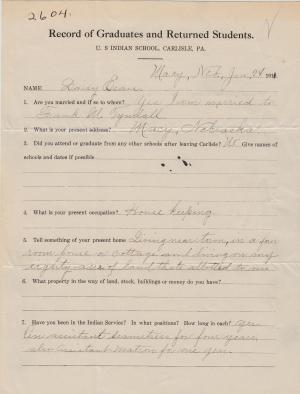 2604.
Record of Graduates and Returned Students.
U. S INDIAN SCHOOL, CARLISLE, PA.
Macy, Neb, Jan, 24 191
NAME Daisy
1. Are you married and if so to whom? Yes I am married to
Frank M. Tyndall
2. What is your present address? Macy, Nebraska.
3. Did you attend or graduate from any other schools after leaving Carlisle? No Give names of
schools and dates if possible
4. What is your present occupation? House keeping
5. Tell something of your present home Living near town, in a four
room house a cottage and living on my
eighty acre of land thats allotted to me
6. What property in the way of land, stock, buildings or money do you have?
7. Have you been in the Indian Service? In what positions? How long in each? Yes
assistant seamstress for four years,
also assistant matron for one year.